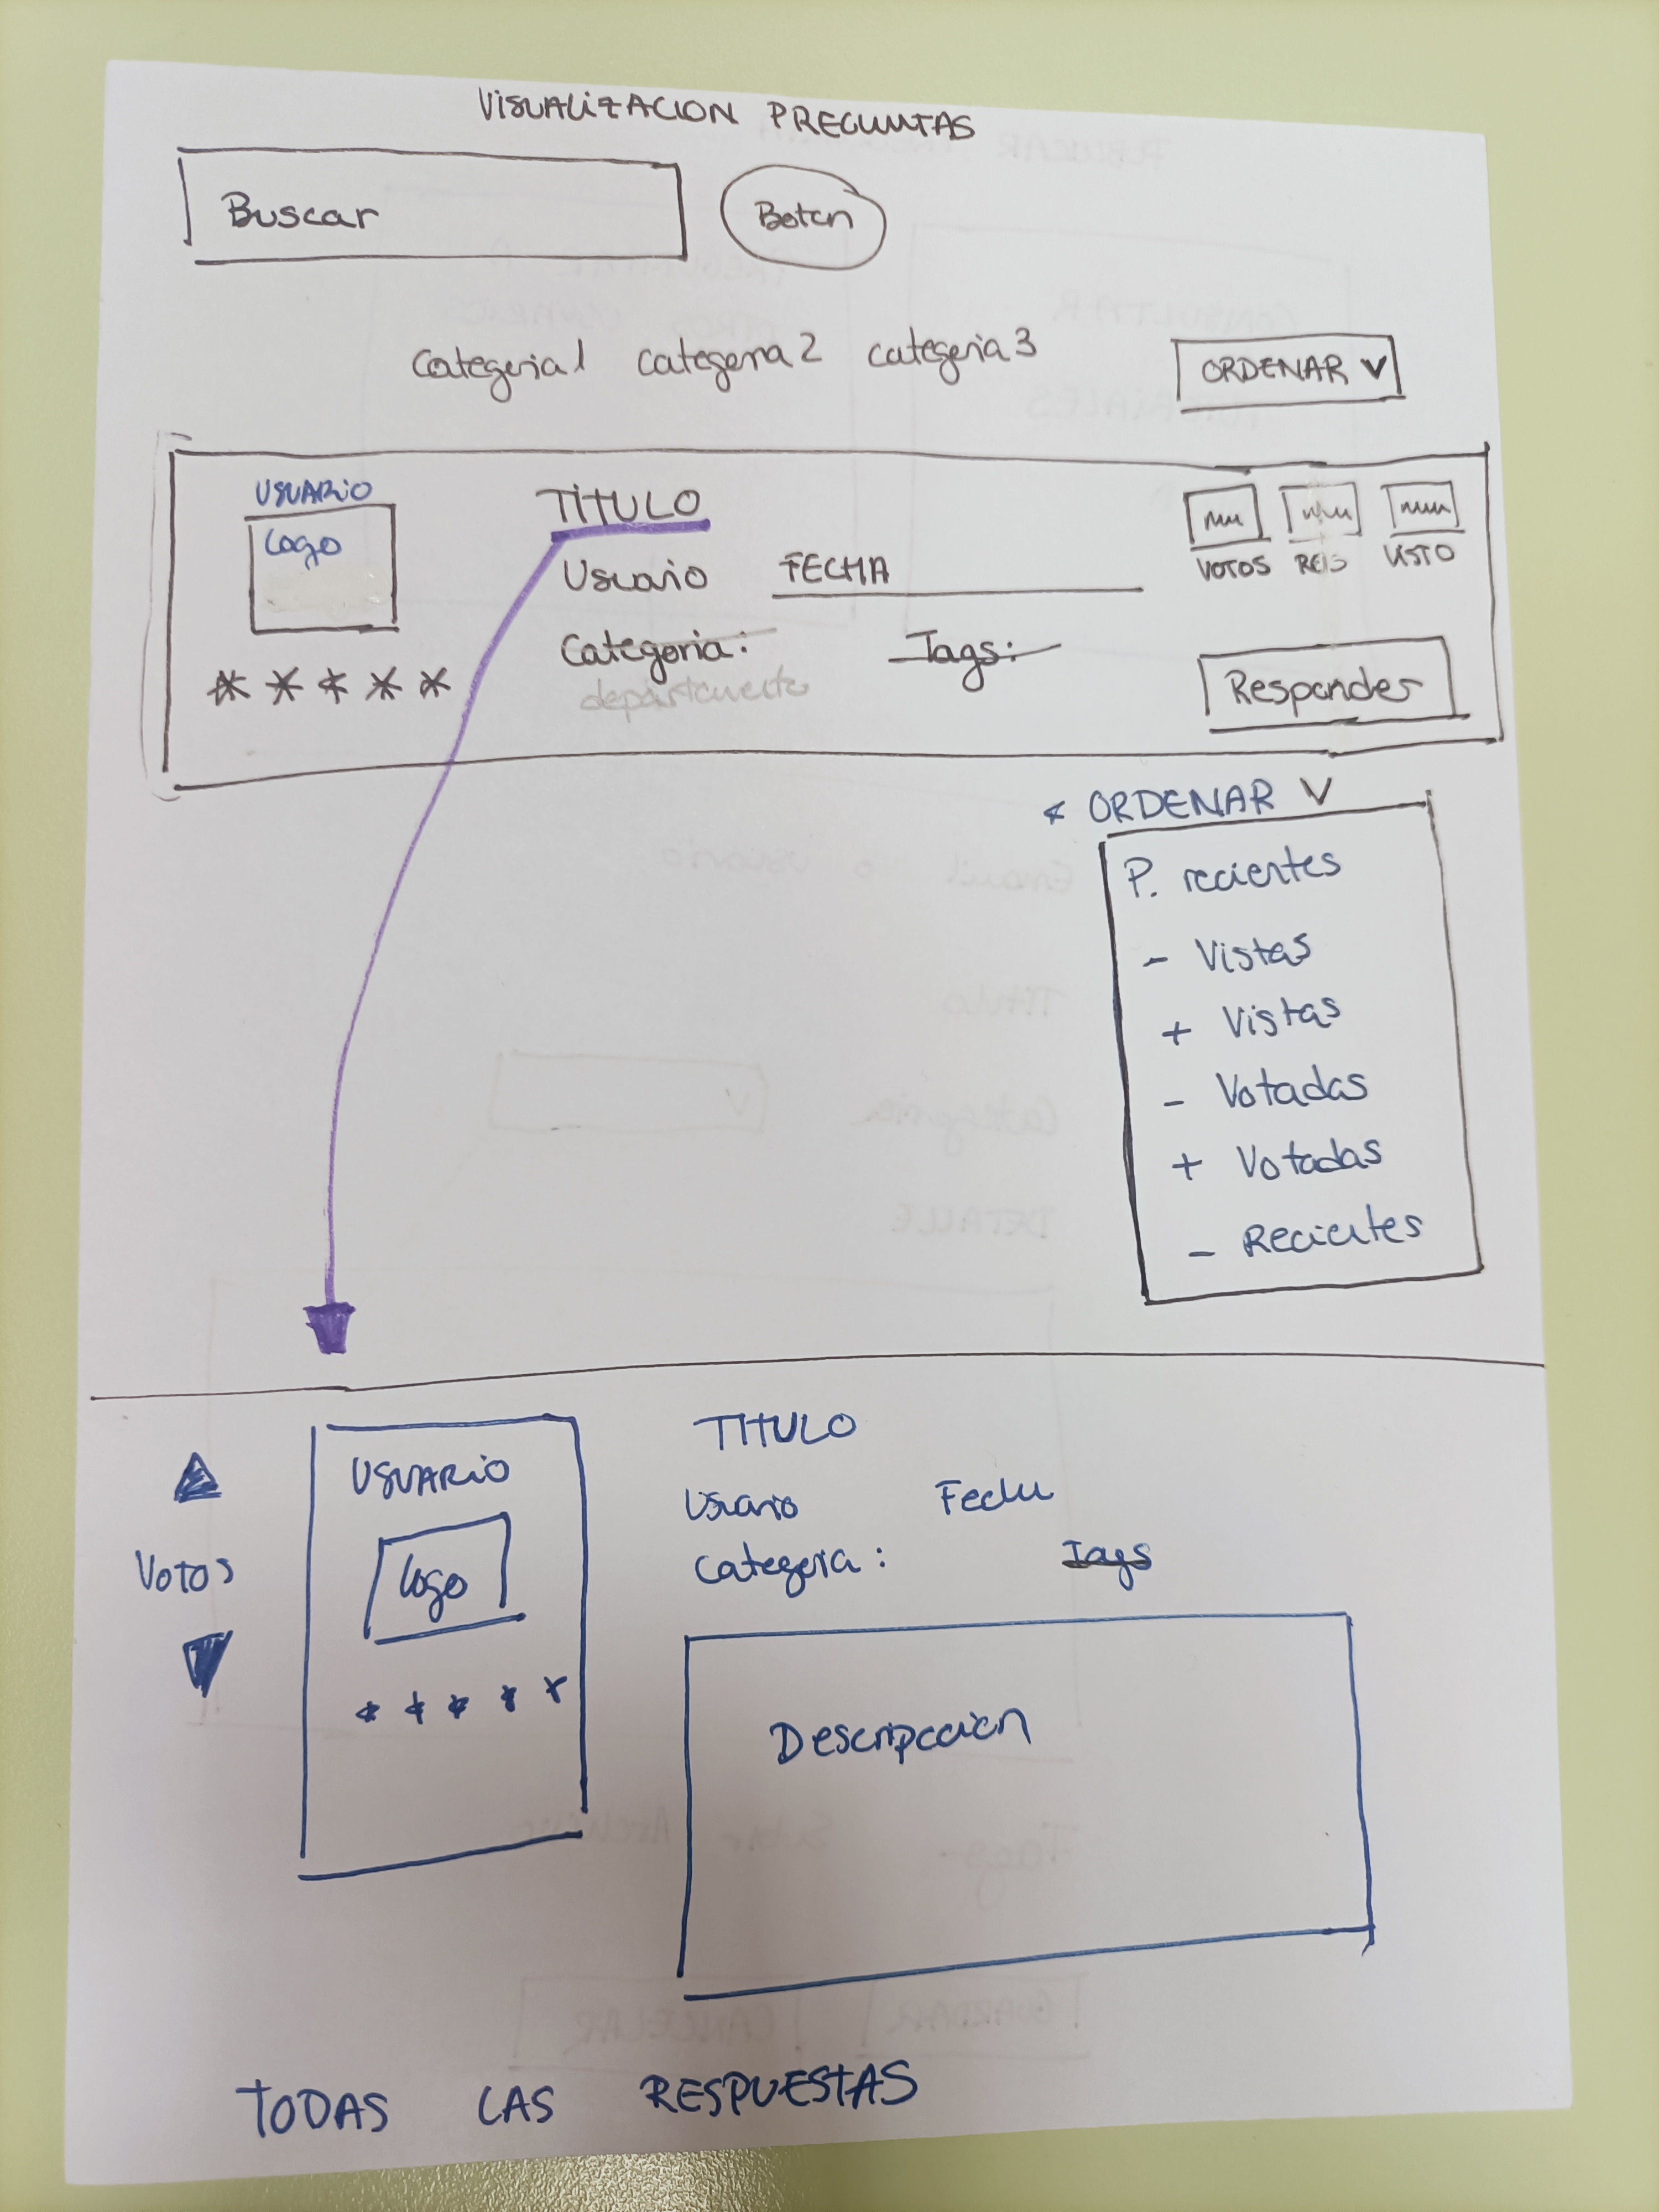 VISUALIZACION PREGUNTAS
Buscar
Boton
Categoria1 categoria2 categoria3
ORDENAR V
USUARIO
Logo
* * * * *
TITULO
Usuario FECHA
Categoria: Tags:
departamento
VOTOS VISTO
Responder
* ORDENAR V
P. recientes
- Vistas
+ Vistas
- Votadas
+ Votadas
- Recientes
Votos
USUARIO
Logo
* * * * *
TITULO
Usuario Fecha
Categoria: Tags
Descripccion
TODAS LAS RESPUESTAS